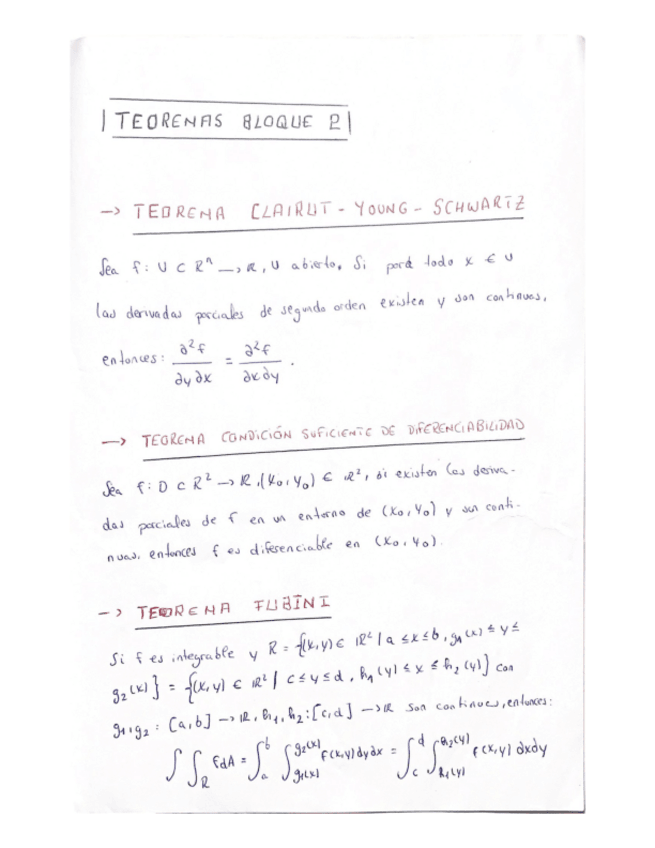 TEOREMAS BLOQUE 2
→ TEOREMA CLAIRUT - YOUNG - SCHWARTZ
Sea f: U ⊂ ℝⁿ → ℝ, U abierto. Si para todo x ∈ U
las derivadas parciales de segundo orden existen y son continuas,
entonces: ∂²f/∂y∂x = ∂²f/∂x∂y .
→ TEOREMA CONDICIÓN SUFICIENTE DE DIFERENCIABILIDAD
Sea f: D ⊂ ℝ² → ℝ, (x₀, y₀) ∈ ℝ², si existen las deriva-
das parciales de f en un entorno de (x₀, y₀) y son conti-
nuas, entonces f es diferenciable en (x₀, y₀).
→ TEOREMA FUBINI
Si f es integrable y R = {(x,y) ∈ ℝ² / a ≤ x ≤ b, g₁(x) ≤ y ≤
g₂(x)} = {(x,y) ∈ ℝ² / c ≤ y ≤ d, h₁(y) ≤ x ≤ h₂(y)} con
g₁, g₂ : [a,b] → ℝ, h₁, h₂ : [c,d] → ℝ son continuas, entonces:
∫∫_R f dA = ∫_a^b ∫_{g₁(x)}^{g₂(x)} f(x,y) dy dx = ∫_c^d ∫_{h₁(y)}^{h₂(y)} f(x,y) dx dy